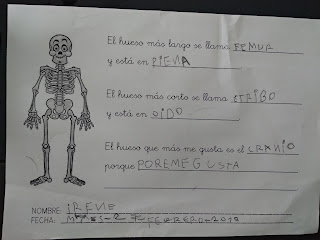 El hueso más largo se llama FEMUR
y está en PIENA
El hueso más corto se llama ETRIBO
y está en OIDO
El hueso que más me gusta es el CRANIO
porque POREMEGUSTA
NOMBRE IRENE
FECHA: 27 FEBRERO-2018